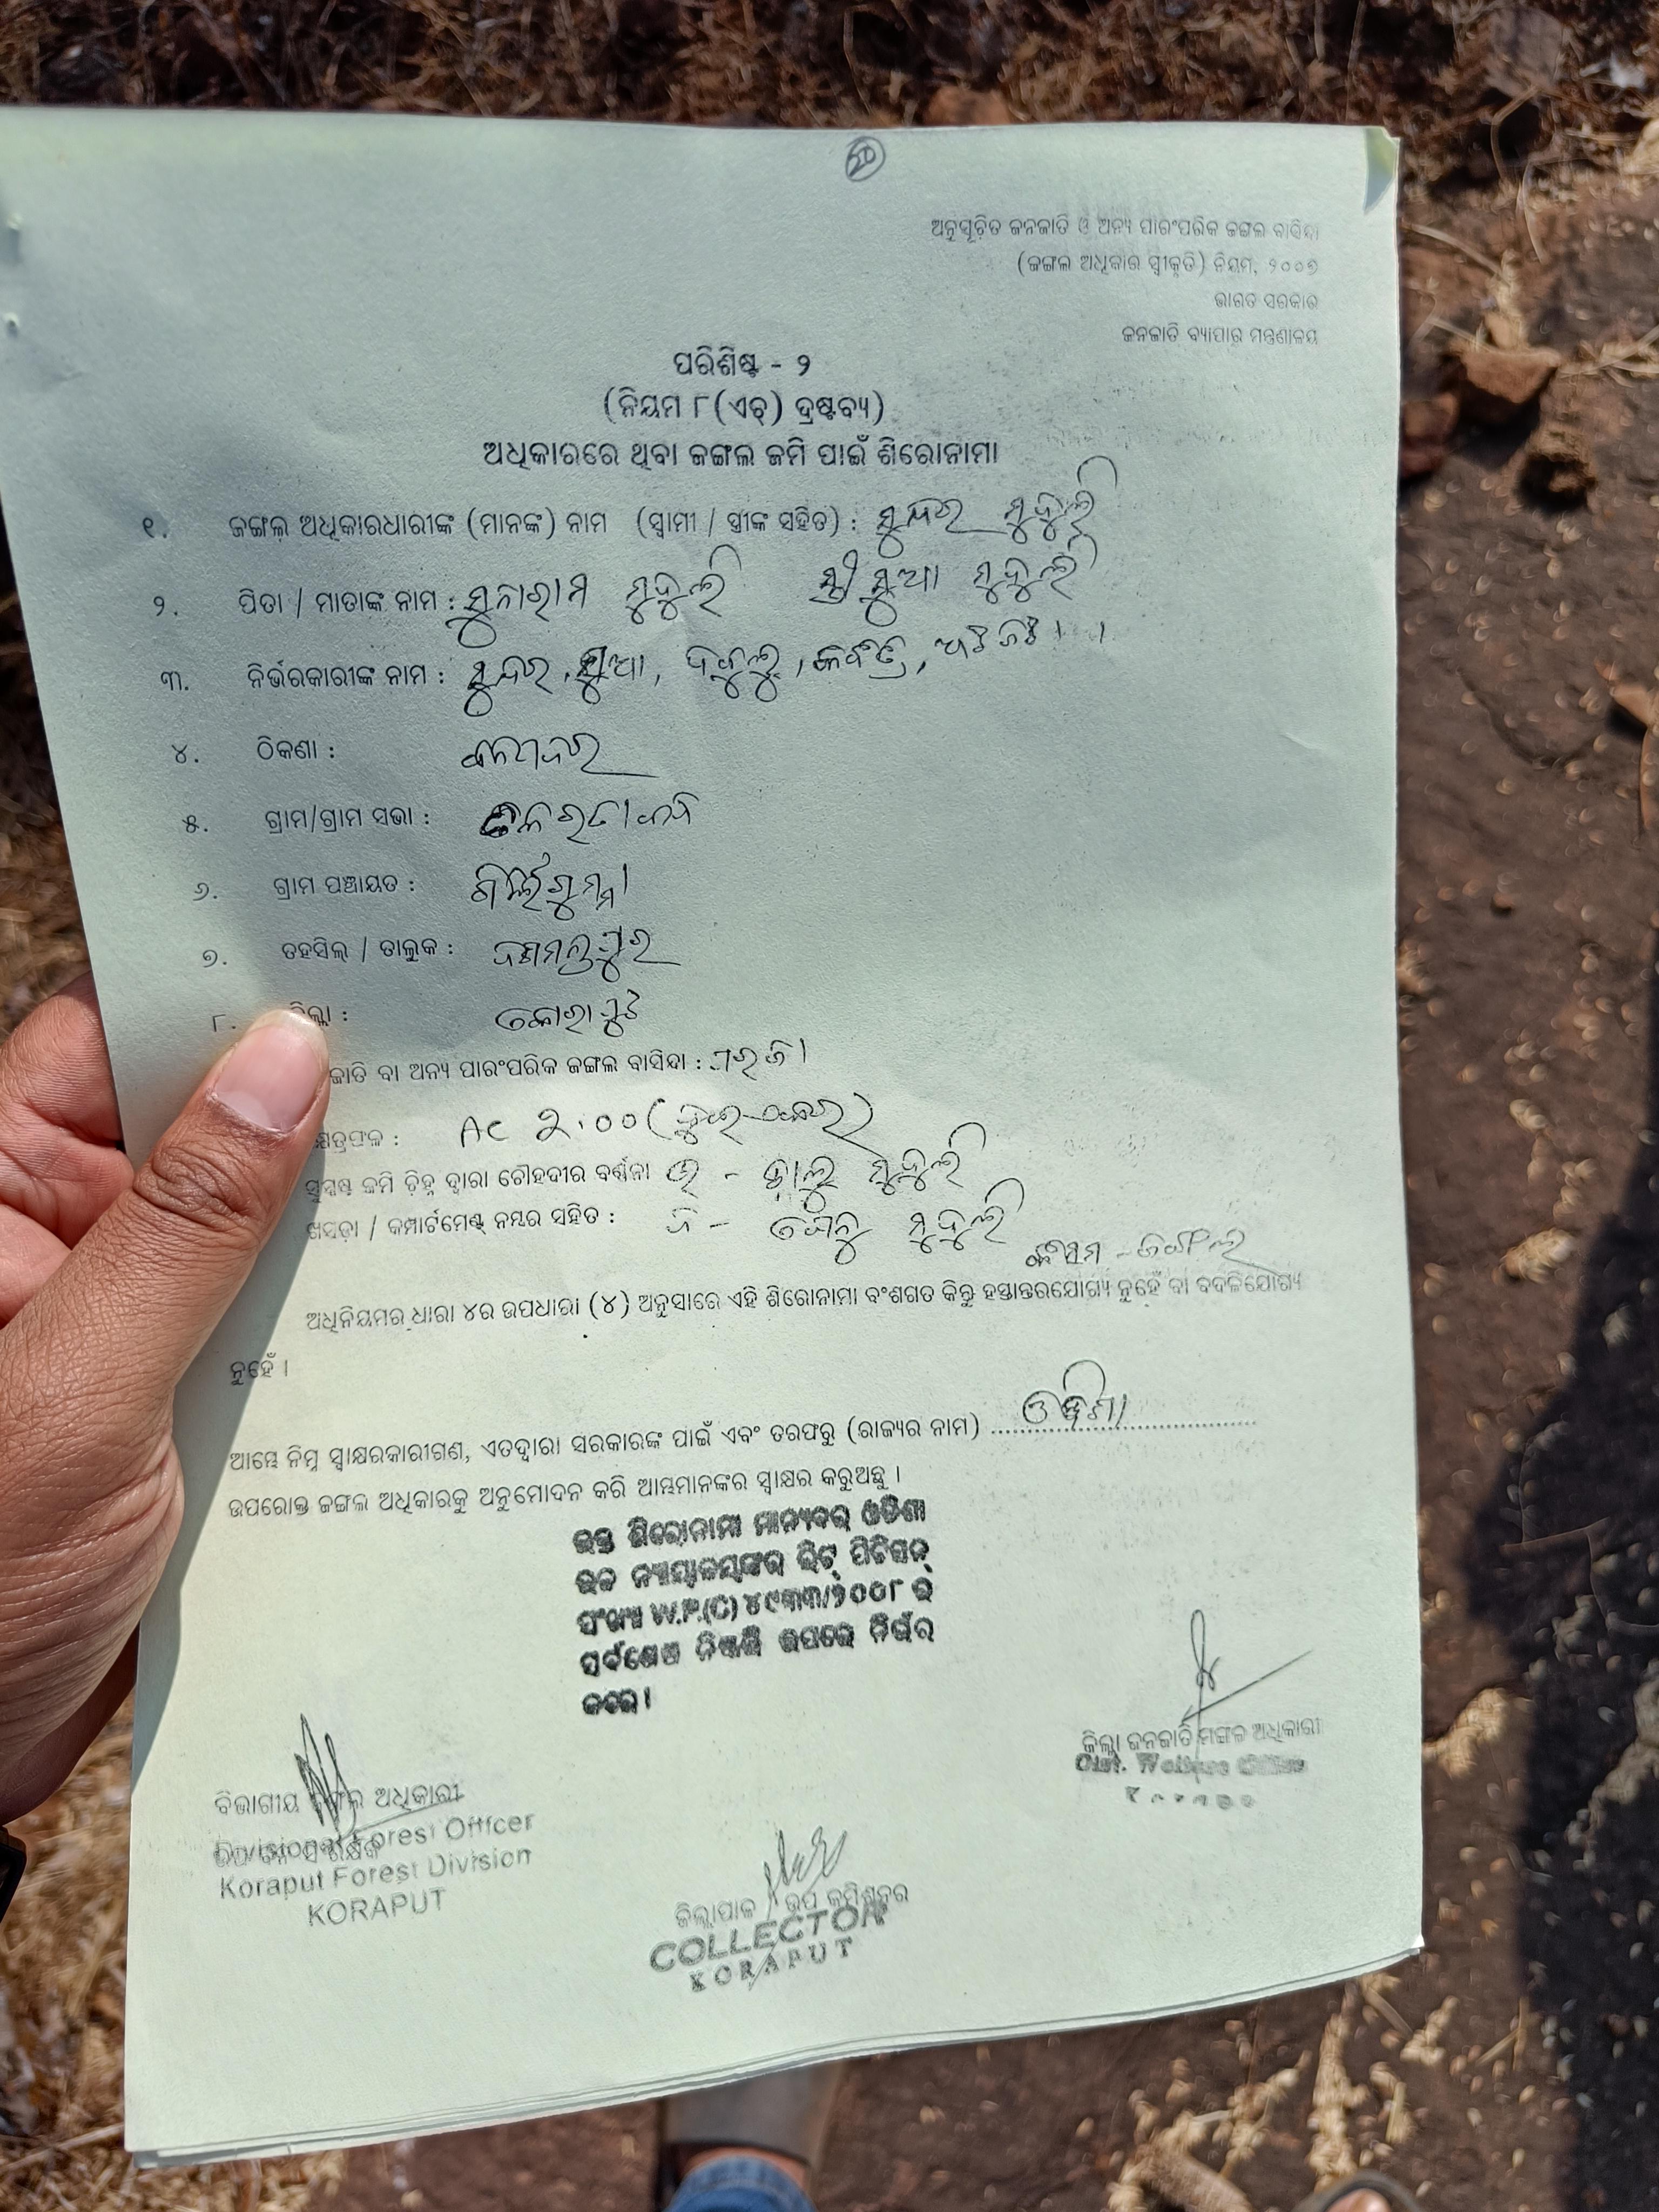 ଅନୁସୂଚିତ ଜନଜାତି ଓ ଅନ୍ୟ ପାରଂପରିକ ଜଙ୍ଗଲ ବାସିନ୍ଦା
(ଜଙ୍ଗଲ ଅଧିକାର ସ୍ୱୀକୃତି) ନିୟମ, ୨୦୦୭
ଭାରତ ସରକାର
ଜନଜାତି ବ୍ୟାପାର ମନ୍ତ୍ରଣାଳୟ
ପରିଶିଷ୍ଟ - ୨
(ନିୟମ ୮(ଏଚ୍) ଦ୍ରଷ୍ଟବ୍ୟ)
ଅଧିକାରରେ ଥିବା ଜଙ୍ଗଲ ଜମି ପାଇଁ ଶିରୋନାମା
୧. ଜଙ୍ଗଲ ଅଧିକାରଧାରୀଙ୍କ (ମାନଙ୍କ) ନାମ (ସ୍ୱାମୀ / ସ୍ତ୍ରୀଙ୍କ ସହିତ) : ସୁନ୍ଦର ମୁଦୁଲି
୨. ପିତା / ମାତାଙ୍କ ନାମ : ସୁନାରାମ ମୁଦୁଲି ସ୍ତ୍ରୀ ସୁଆ ମୁଦୁଲି
୩. ନିର୍ଭରକାରୀଙ୍କ ନାମ : ସୁନ୍ଦର, ସୁଆ,
୪. ଠିକଣା :
୫. ଗ୍ରାମ/ଗ୍ରାମ ସଭା :
୬. ଗ୍ରାମ ପଞ୍ଚାୟତ : ଗିରଲିଗୁମ୍ମା
୭. ତହସିଲ୍ / ତାଲୁକ : ଦଶମନ୍ତପୁର
୮. ଜିଲ୍ଲା : କୋରାପୁଟ
ଜାତି ବା ଅନ୍ୟ ପାରଂପରିକ ଜଙ୍ଗଲ ବାସିନ୍ଦା :
କ୍ଷେତ୍ରଫଳ : AC 2.00 (ଦୁଇ ଏକର)
ସୁସ୍ପଷ୍ଟ ଜମି ଚିହ୍ନ ଦ୍ୱାରା ଚୌହଦୀର ବର୍ଣ୍ଣନା ଉ - ମୁଦୁଲି
ଖସଡ଼ା / କମ୍ପାର୍ଟମେଣ୍ଟ୍ ନମ୍ବର ସହିତ : ଦ - ମୁଦୁଲି
ଜଙ୍ଗଲ
ଅଧିନିୟମର ଧାରା ୪ର ଉପଧାରା (୪) ଅନୁସାରେ ଏହି ଶିରୋନାମା ବଂଶଗତ କିନ୍ତୁ ହସ୍ତାନ୍ତରଯୋଗ୍ୟ ନୁହେଁ ବା ବଦଳିଯୋଗ୍ୟ
ନୁହେଁ ।
ଆମ୍ଭେ ନିମ୍ନ ସ୍ୱାକ୍ଷରକାରୀଗଣ, ଏତଦ୍ୱାରା ସରକାରଙ୍କ ପାଇଁ ଏବଂ ତରଫରୁ (ରାଜ୍ୟର ନାମ) ଓଡ଼ିଶା
ଉପରୋକ୍ତ ଜଙ୍ଗଲ ଅଧିକାରକୁ ଅନୁମୋଦନ କରି ଆମ୍ଭମାନଙ୍କର ସ୍ୱାକ୍ଷର କରୁଅଛୁ ।
ଉକ୍ତ ଶିରୋନାମା ମାନ୍ୟବର ଓଡିଶା
ଉଚ୍ଚ ନ୍ୟାୟାଳୟଙ୍କର ରିଟ୍ ପିଟିସନ୍
ସଂଖ୍ୟା W.P.(C) ୪୯୩୩/୨୦୦୮ ର
ସର୍ବଶେଷ ନିଷ୍ପତ୍ତି ଉପରେ ନିର୍ଭର
କରେ ।
ଜିଲ୍ଲା ଜନଜାତି ମଙ୍ଗଳ ଅଧିକାରୀ
Dist. Welfare Officer
ବିଭାଗୀୟ ଜଙ୍ଗଲ ଅଧିକାରୀ
Divisional Forest Officer
Koraput Forest Division
KORAPUT
ଜିଲ୍ଲାପାଳ / ଉପ କମିଶନର
COLLECTOR
KORAPUT